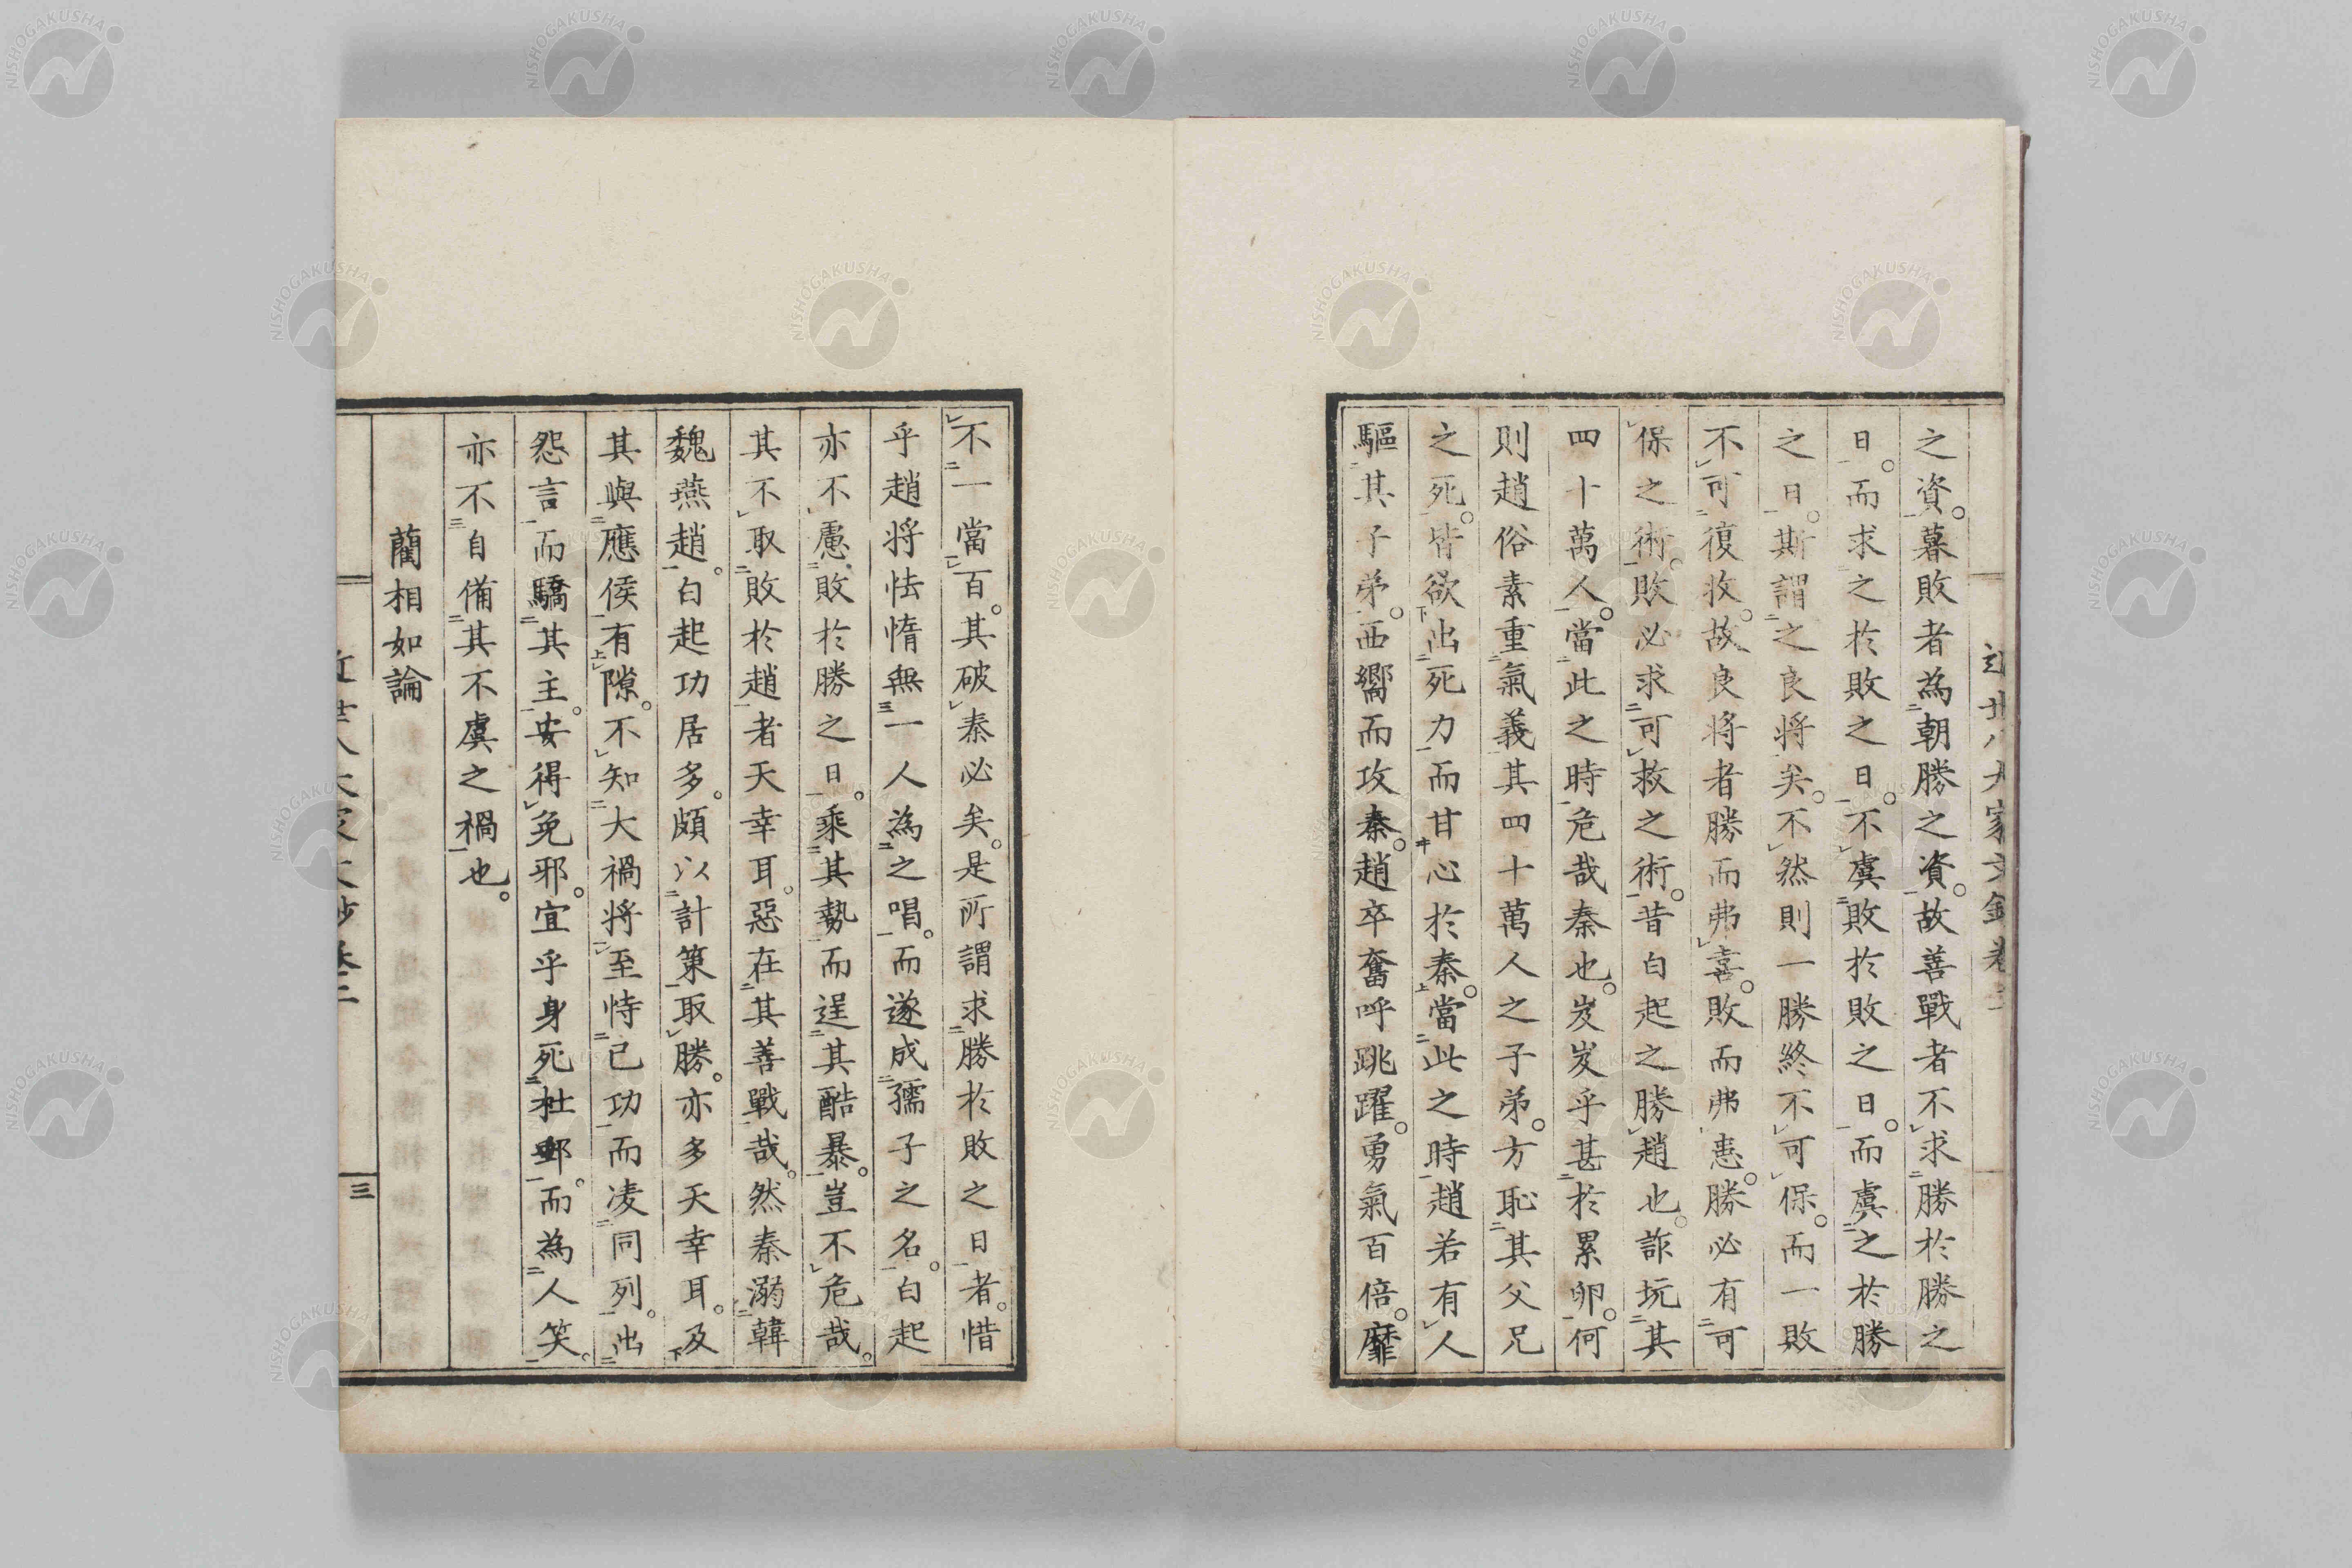 之資。暮敗者為朝勝之資。故善戰者不求勝於勝之
日。而求之於敗之日。不虞敗於敗之日。而虞之於勝
之日。斯謂之良將矣。不然則一勝終不可保。而一敗
不可復救。故良將者勝而弗喜。敗而弗恚。勝必有可
保之術。敗必求可救之術。昔白起之勝趙也。詐坑其
四十萬人。當此之時危哉秦也。岌岌乎甚於累卵。何
則趙俗素重氣義其四十萬人之子弟。方恥其父兄
之死。皆欲出死力而甘心於秦。當此之時趙若有人
驅其子弟。西嚮而攻秦。趙卒奮呼跳躍。勇氣百倍。靡
不一當百。其破秦必矣。是所謂求勝於敗之日者。惜
乎趙將怯惰無一人為之唱。而遂成孺子之名。白起
亦不慮敗於勝之日。乘其勢而逞其酷暴。豈不危哉。
其不取敗於趙者天幸耳。惡在其善戰哉。然秦溺韓
魏燕趙。白起功居多。頗以計策取勝。亦多天幸耳。及
其與應侯有隙。不知大禍將至恃己功而凌同列。出
怨言而驕其主。安得免邪。宜乎身死杜郵。而為人笑。
亦不自備其不虞之禍也。
藺相如論
三